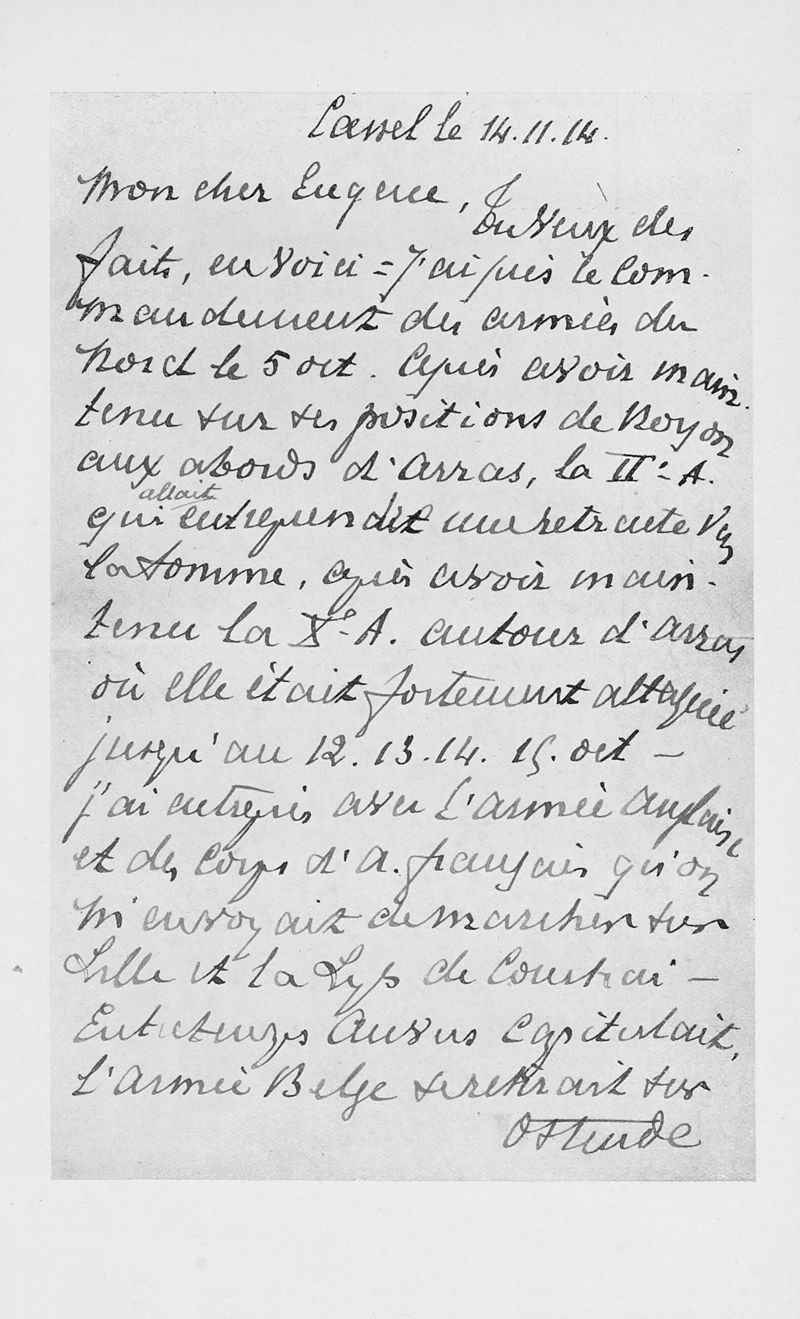 Cassel le 14.11.14.
Mon cher Eugene,
Tu veux des
faits, en voici = J'ai pris le Com-
mandement des armées du
Nord le 5 oct. Après avoir main-
tenu sur ses positions de Noyon
aux abords d'Arras, la IIe A.
allait
qui entreprendre une retraite vers
la Somme, après avoir main-
tenu la Xe A. autour d'Arras
où elle était fortement attaquée
jusqu'au 12.13.14.15. oct —
j'ai entrepris avec l'armée anglaise
et des Corps d'A. français qu'on
m'envoyait de marcher sur
Lille et la Lys de Courtrai —
Entretemps Anvers Capitulait,
l'armée Belge se retirait sur
Ostende